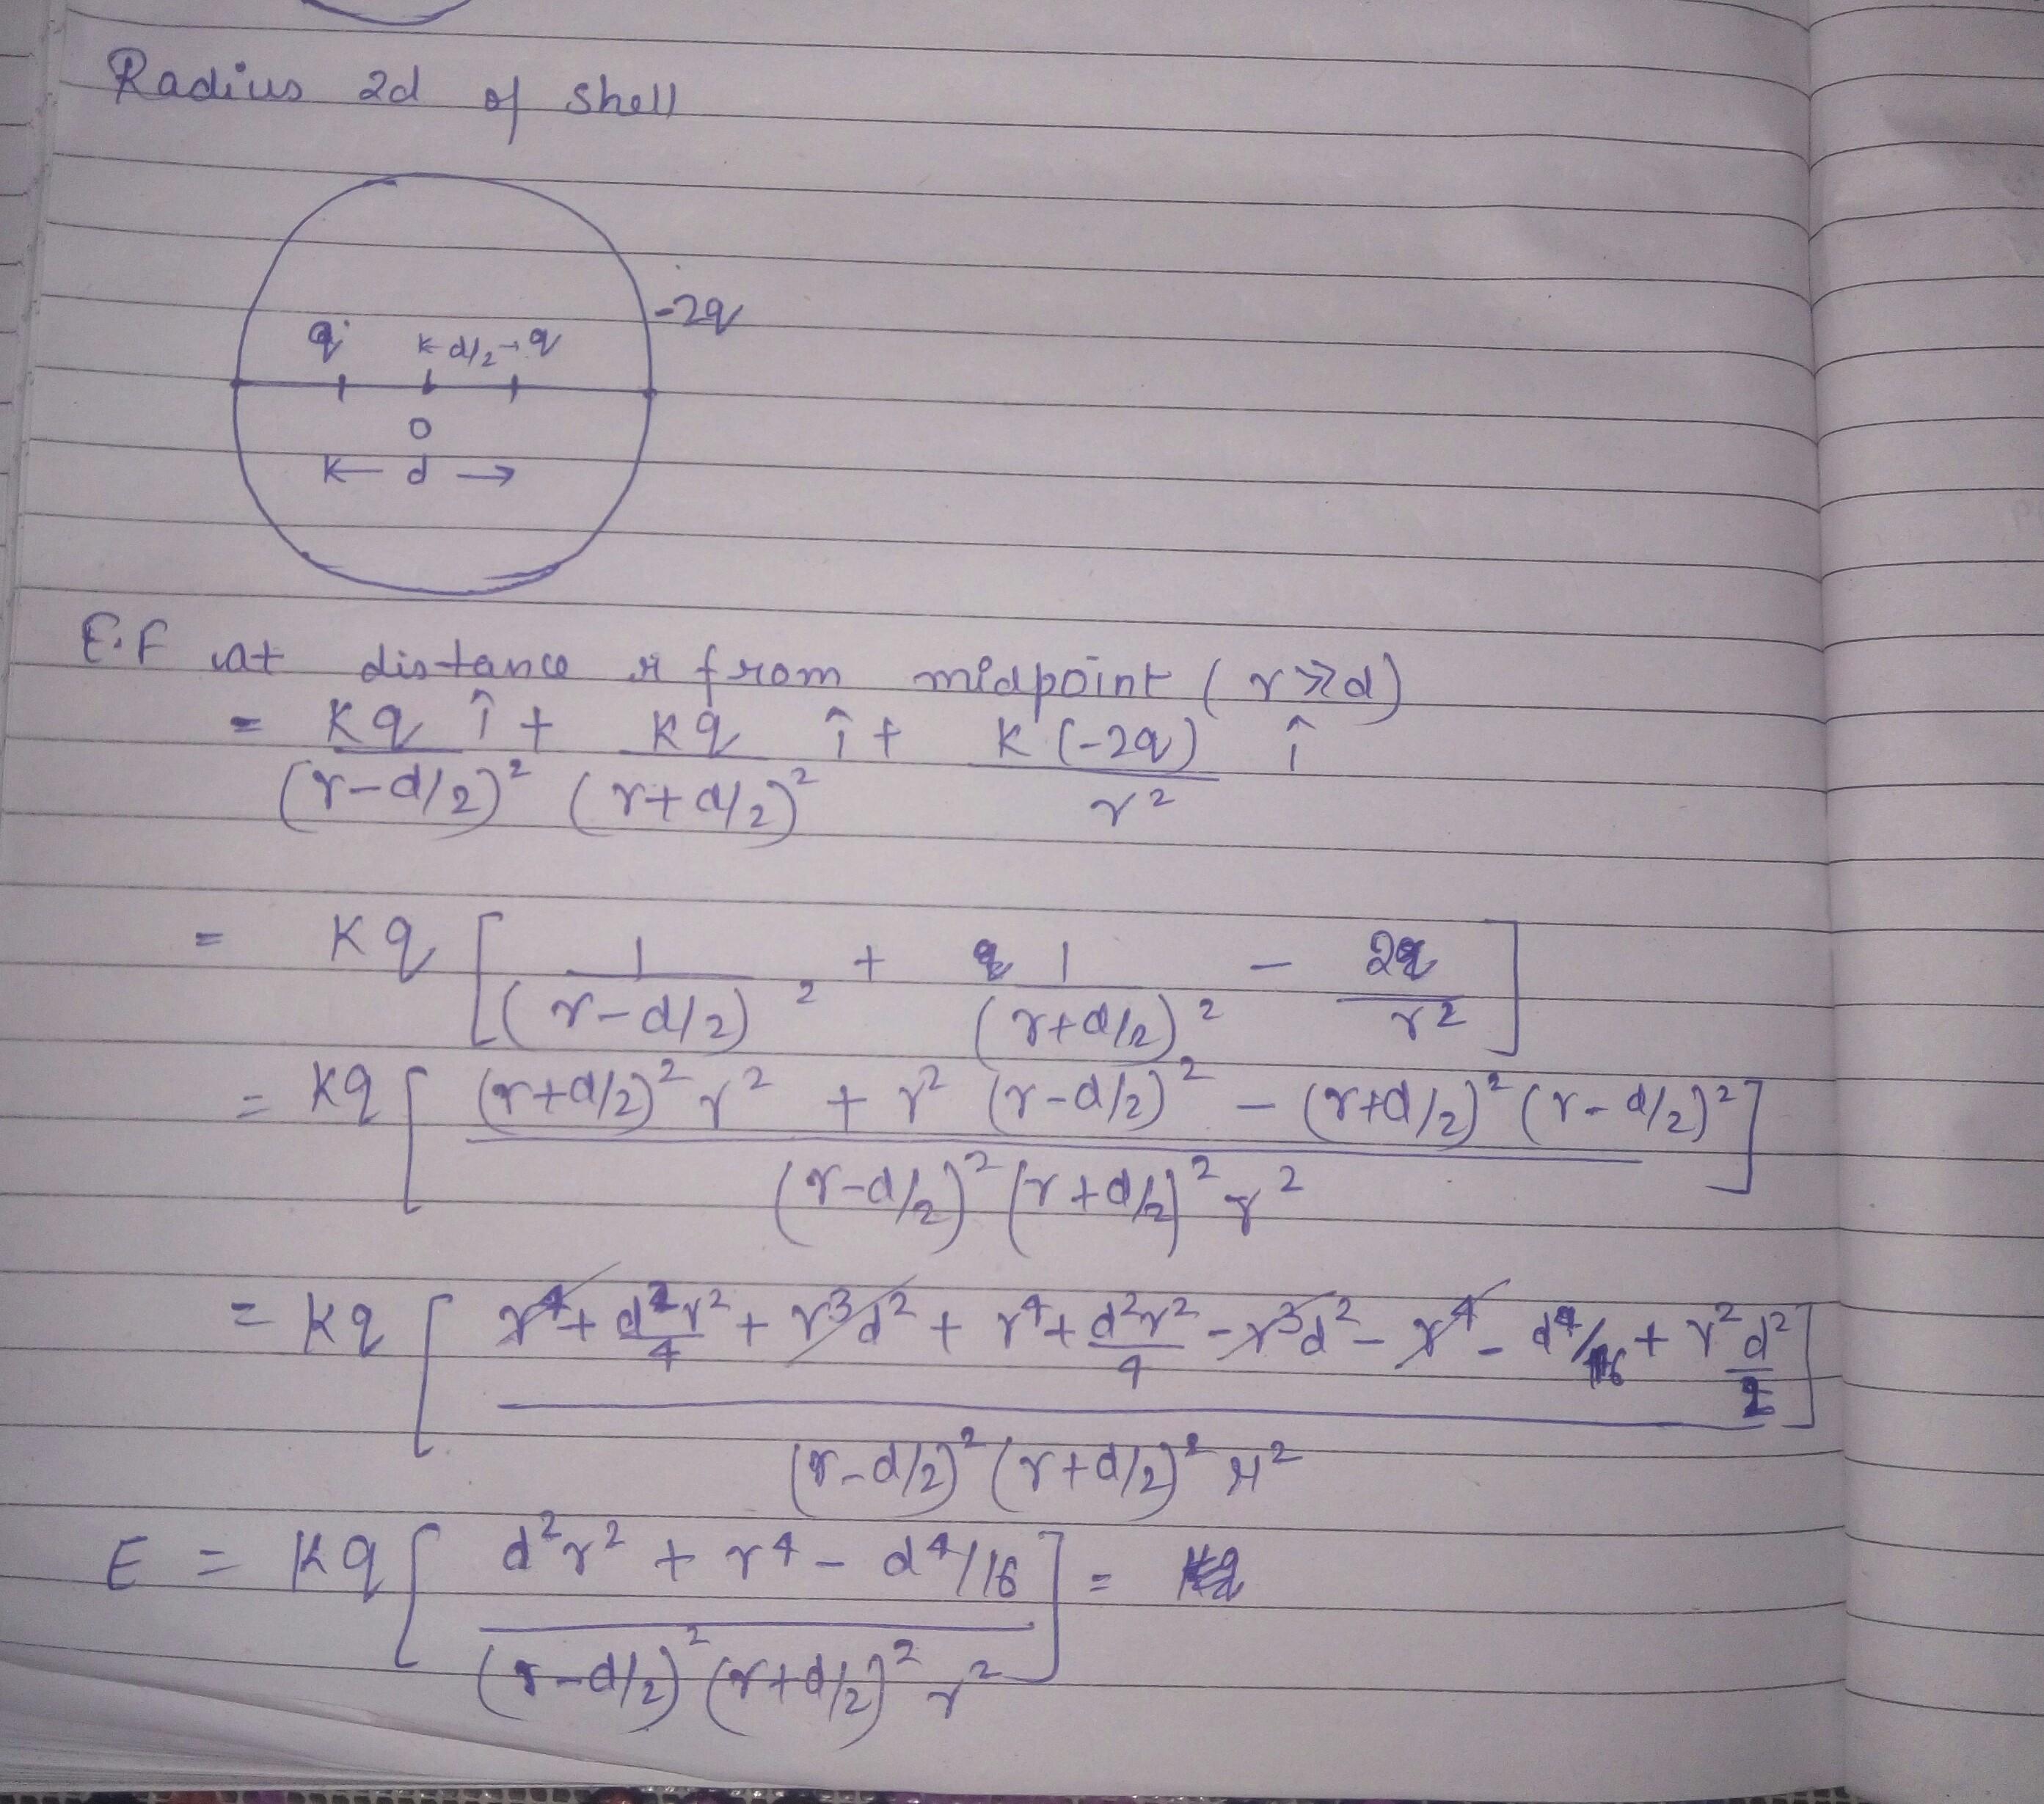 Radius 2d of shell
-2q
q k d/2 → q
O
k— d →
E.F at distance r from midpoint ( r >> d )
= kq/(r-d/2)² î + kq/(r+d/2)² î + k(-2q)/r² î
= kq [ 1/(r-d/2)² + 1/(r+d/2)² - 2/r² ]
= kq [ (r+d/2)² r² + r² (r-d/2)² - (r+d/2)² (r-d/2)² / (r-d/2)² (r+d/2)² r² ]
= kq [ r⁴ + d²r²/4 + r³d² + r⁴ + d²r²/4 - r³d² - r⁴ - d⁴/16 + r²d²/2 / (r-d/2)² (r+d/2)² r² ]
E = kq [ d²r² + r⁴ - d⁴/16 / (r-d/2)² (r+d/2)² r² ] =